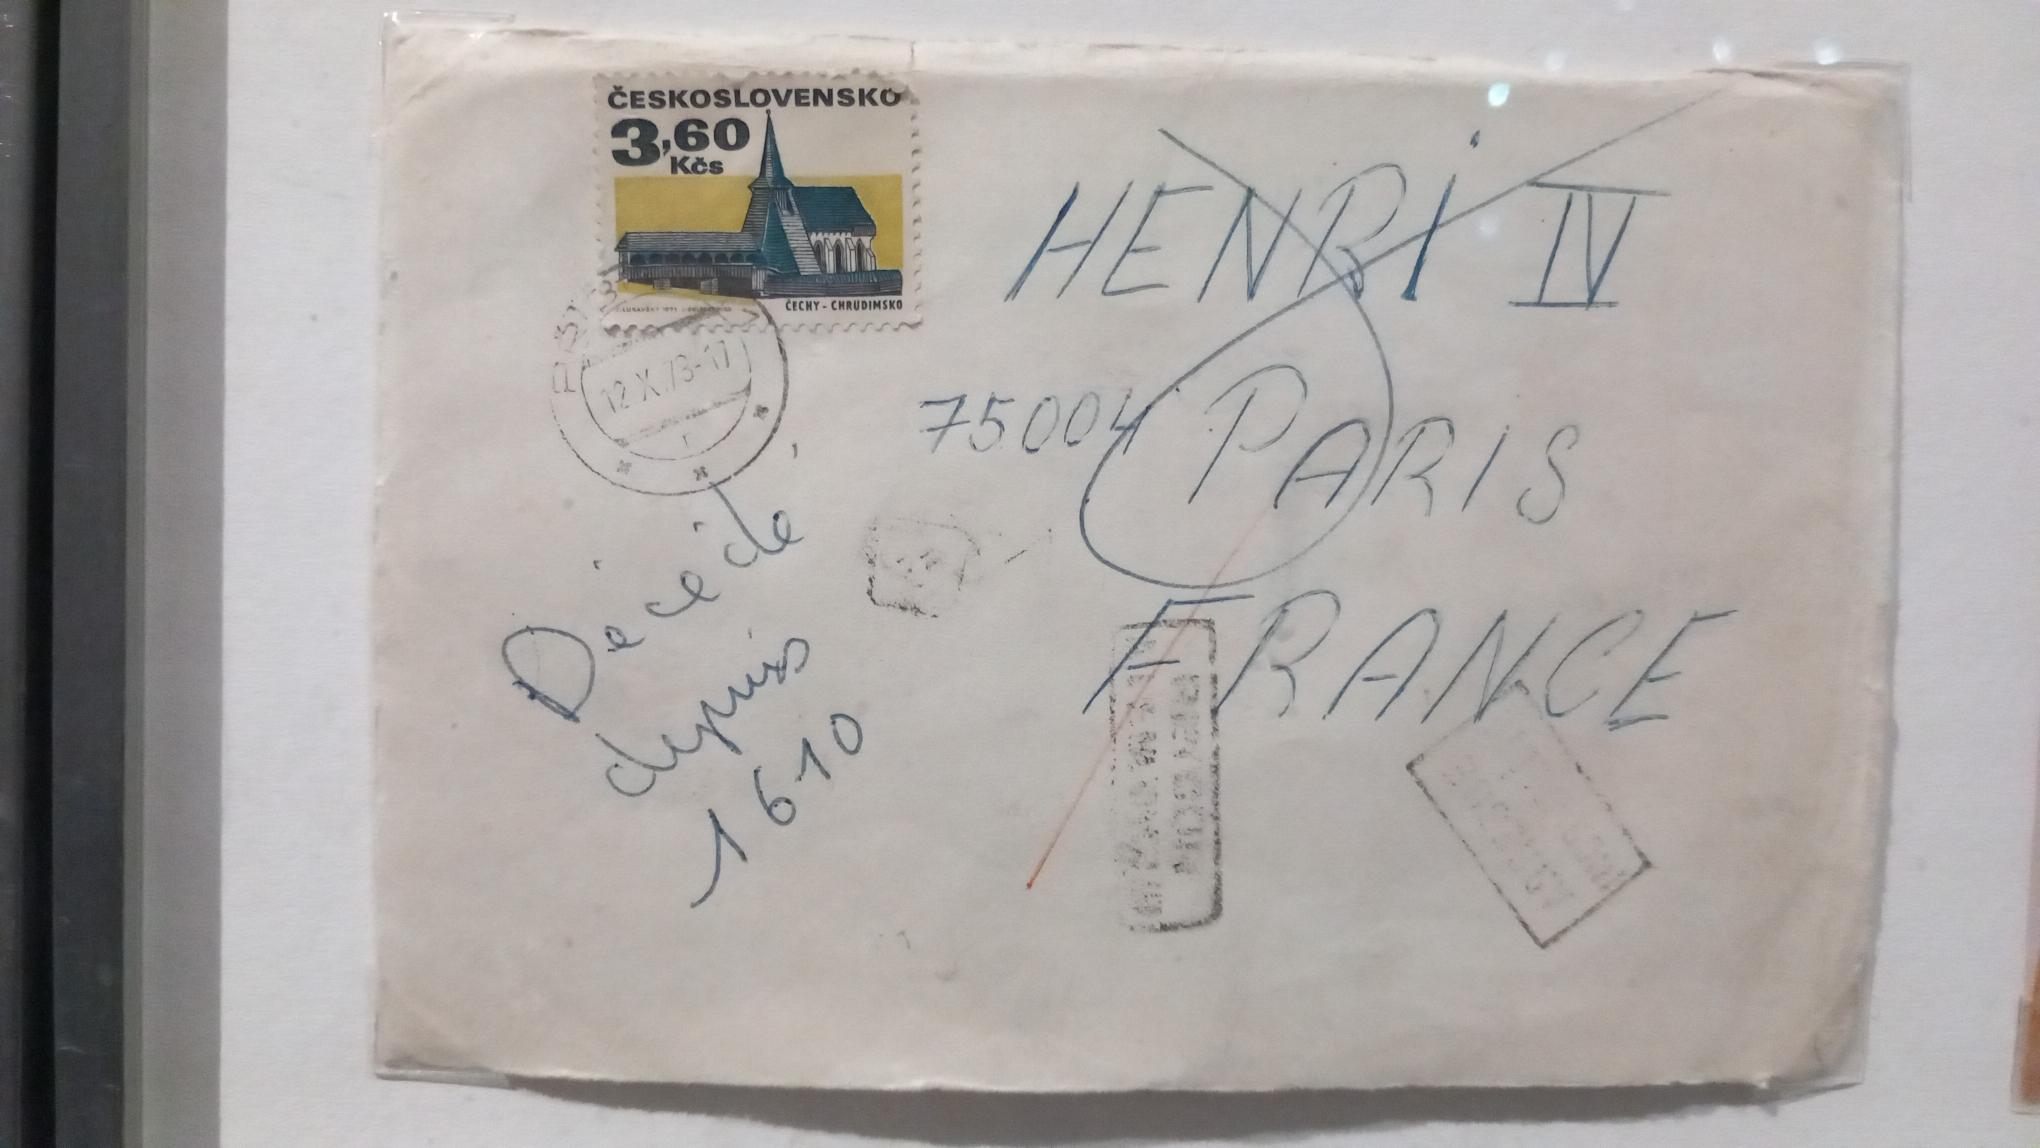 ČESKOSLOVENSKO
3,60
Kčs
ČECHY - CHRUDIMSKO
12.X.73-17
HENRI IV
75004 PARIS
FRANCE
Décédé
depuis
1610